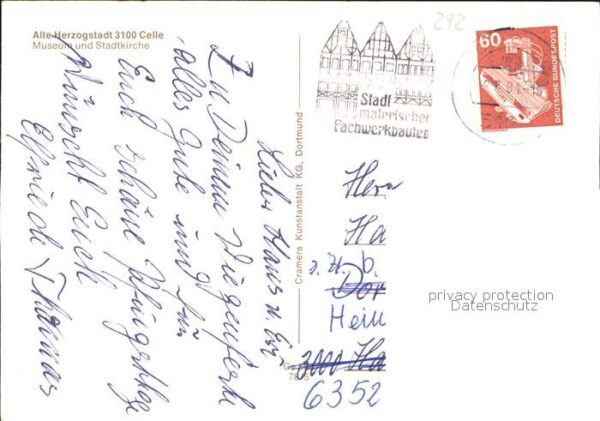 Alte Herzogstadt 3100 Celle
Museum und Stadtkirche
292
60
DEUTSCHE BUNDESPOST
Stadt
malerischer
Fachwerkbauten
Cramers Kunstanstalt KG, Dortmund
Liebe Hans u. Evi,
Zu Deinem Wiegenfeste
alles Gute und für
Euch schöne Pfingsttage
Wünscht Euch
Elfriede Thomas
Herr
Ha
z. Zt. b.
Dor
Hein
3000 Ha
6352
privacy protection
Datenschutz